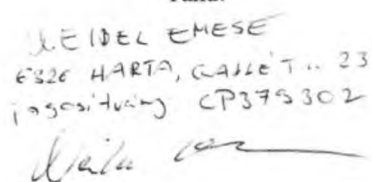 WEIDEL EMESE
6326 HARTA, GALLÉ T .. 23
jogosítvány CP379302